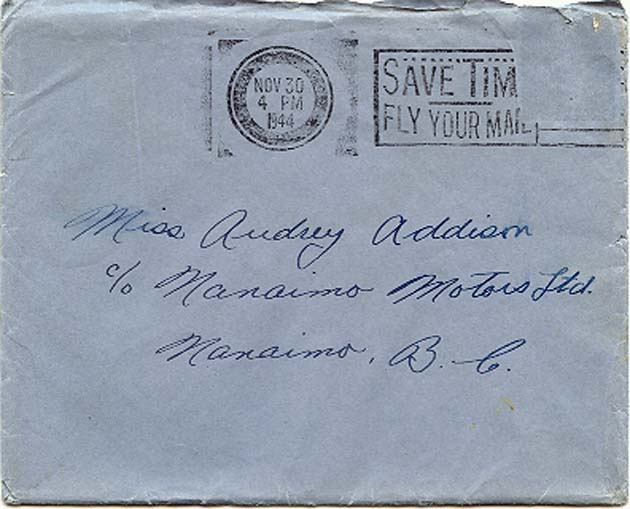 NOV 30
4 PM
1944
SAVE TIM
FLY YOUR MAIL
Miss Audrey Addison
c/o Nanaimo Motors Ltd.
Nanaimo, B. C.